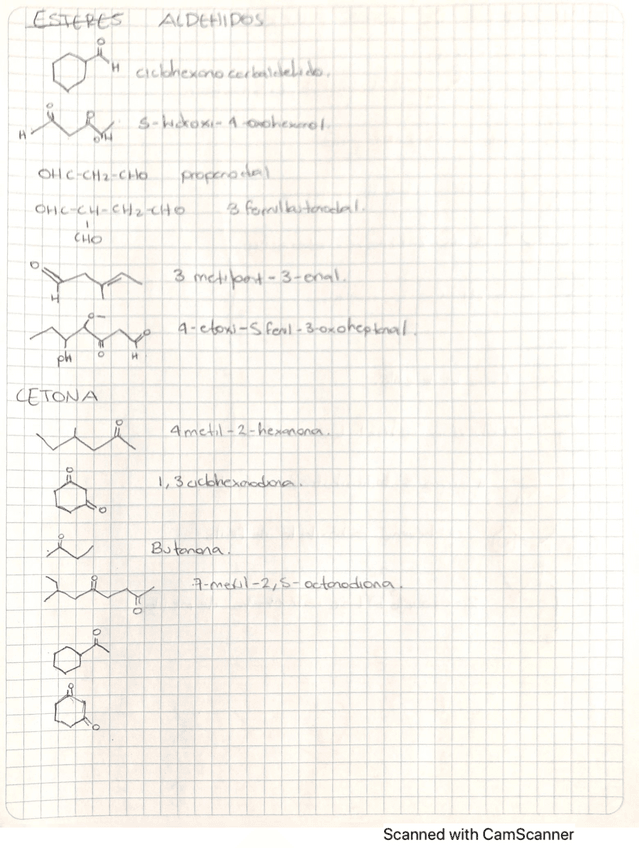 ESTERES ALDEHIDOS
O
H
ciclohexano carbaldehido.
O O
H OH
5-hidroxi-4-oxohexanal.
OHC-CH2-CHO propanodial
OHC-CH-CH2-CHO 3 formilbutanodial.
CHO
O
H
3 metilpent-3-enal.
O-
O
O
H
ph
4-etoxi-5 fenil-3-oxoheptanal.
CETONA
O
4 metil-2-hexanona.
O
O
1,3 ciclohexanodiona.
O
Butanona.
O
O
7-metil-2,5-octanodiona.
O
O
O
Scanned with CamScanner